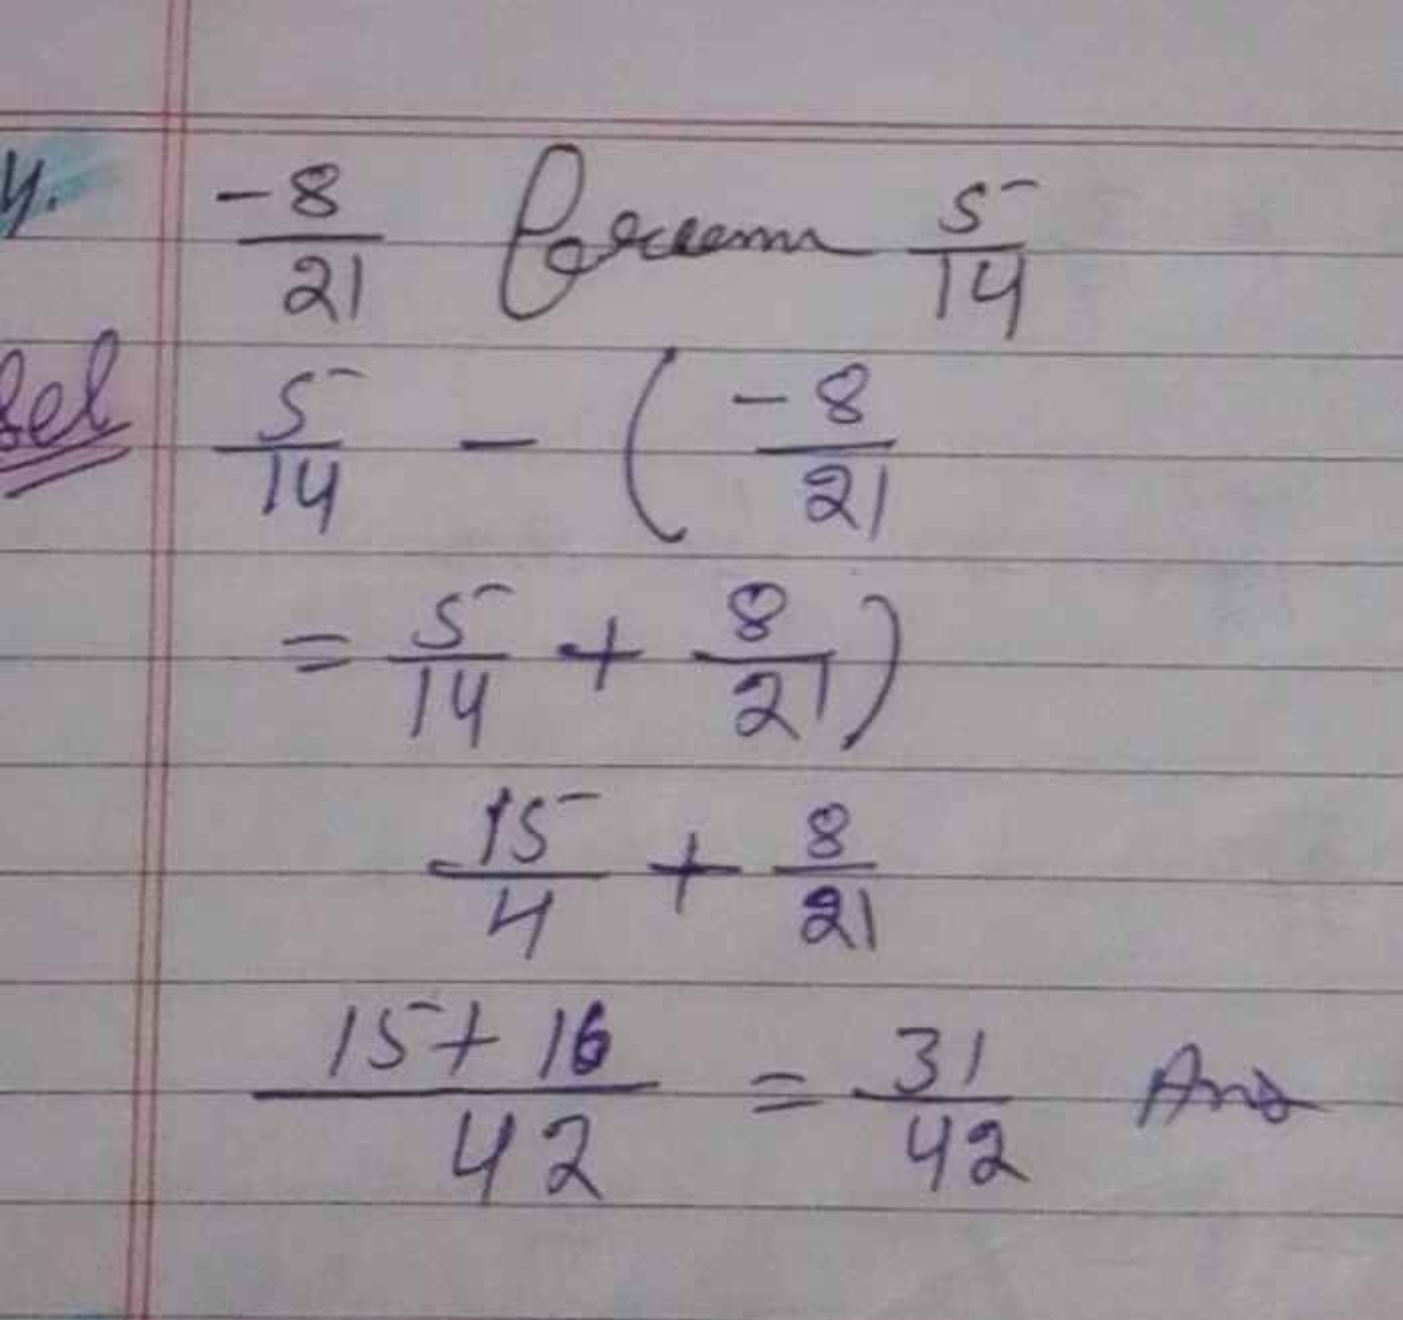 4. -8/21 from 5/14
Sol 5/14 - ( -8/21
= 5/14 + 8/21 )
15/4 + 8/21
15+16/42 = 31/42 Ans